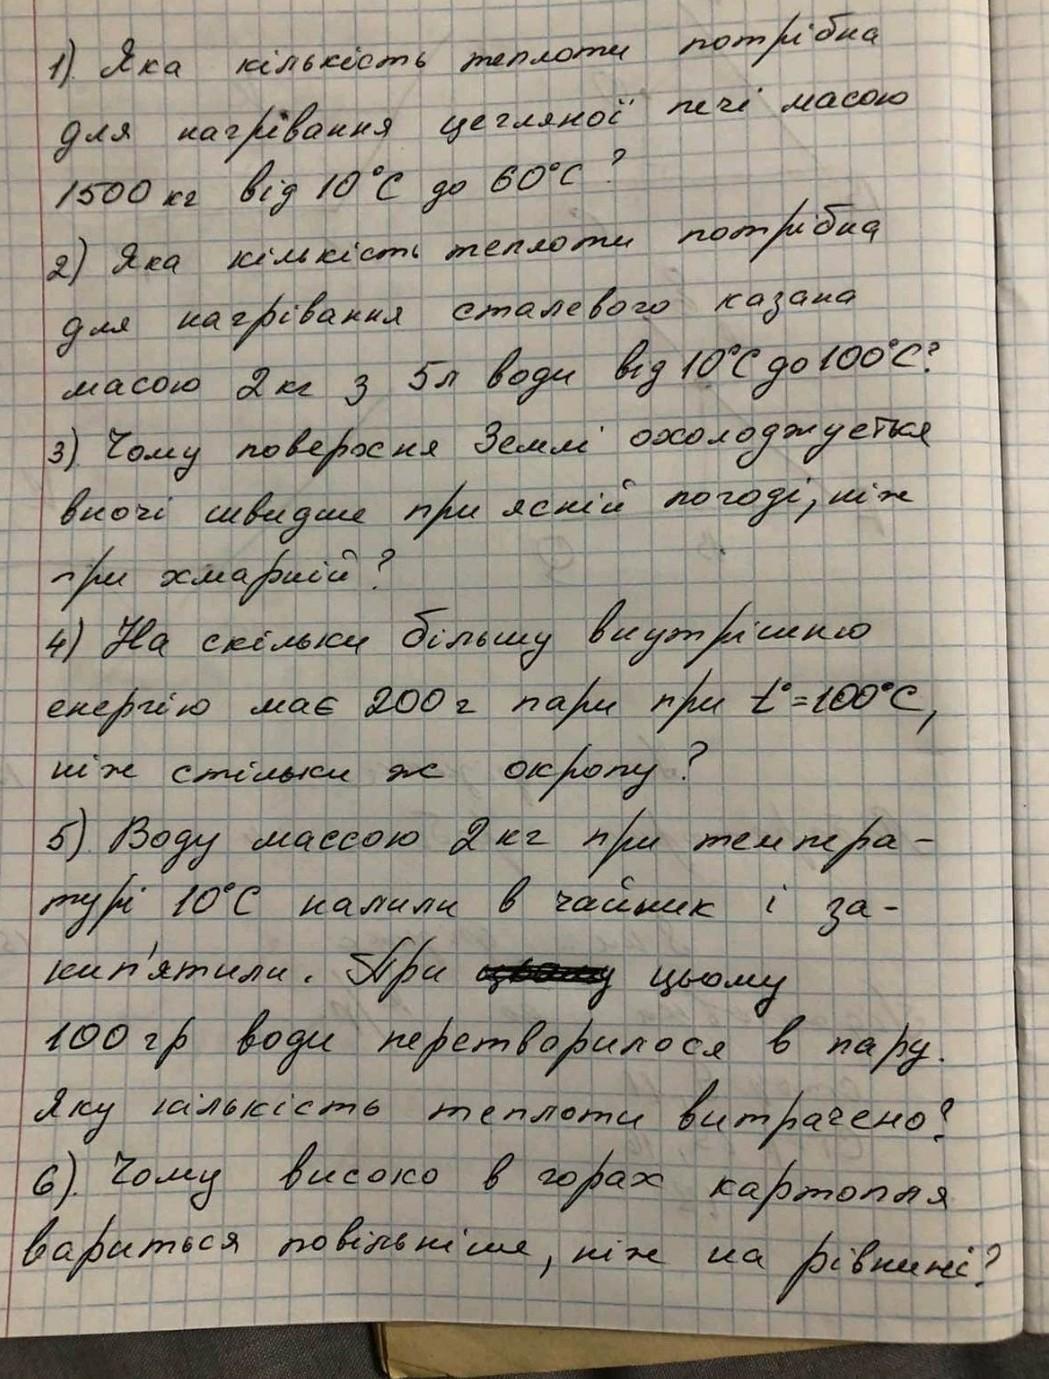 1) Яка кількість теплоти потрібна
для нагрівання цегляної печі масою
1500 кг від 10°С до 60°С?
2) Яка кількість теплоти потрібна
для нагрівання сталевого казана
масою 2 кг з 5л води від 10°С до 100°С?
3) Чому поверхня Землі охолоджується
вночі швидше при ясній погоді, ніж
при хмарній?
4) На скільки більшу внутрішню
енергію має 200 г пари при t°=100°С,
ніж стільки ж окропу?
5) Воду массою 2 кг при темпера-
турі 10°С налили в чайник і за-
кип'ятили. При цьому
100 гр води перетворилося в пару.
Яку кількість теплоти витрачено?
6) Чому високо в горах картопля
вариться повільніше, ніж на рівнині?